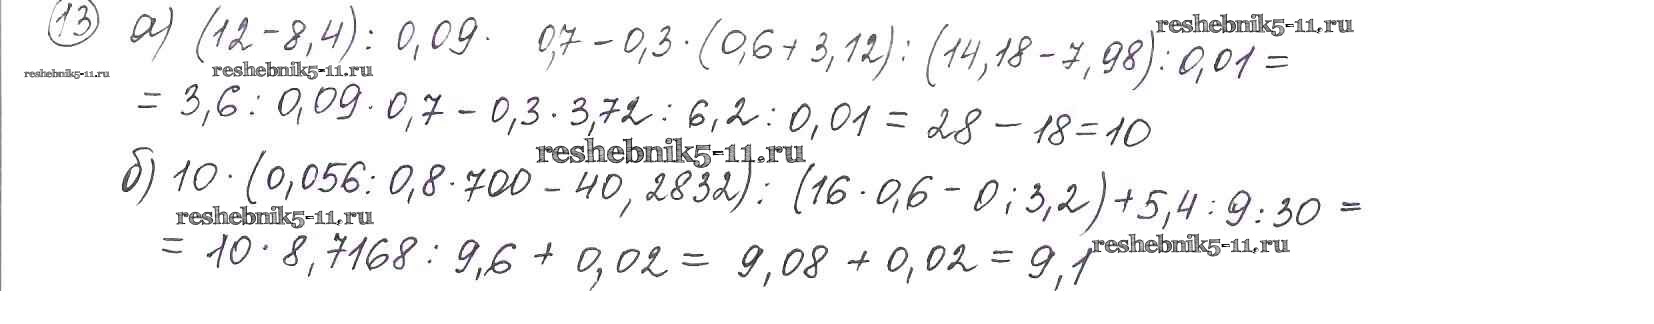 13 а) (12-8,4): 0,09· 0,7-0,3·(0,6+3,12):(14,18-7,98):0,01= reshebnik5-11.ru
reshebnik5-11.ru reshebnik5-11.ru
= 3,6:0,09·0,7-0,3·3,72:6,2:0,01=28-18=10
reshebnik5-11.ru
б) 10·(0,056:0,8·700-40,2832):(16·0,6-0:3,2)+5,4:9:30=
reshebnik5-11.ru
= 10·8,7168:9,6+0,02=9,08+0,02=9,1 reshebnik5-11.ru